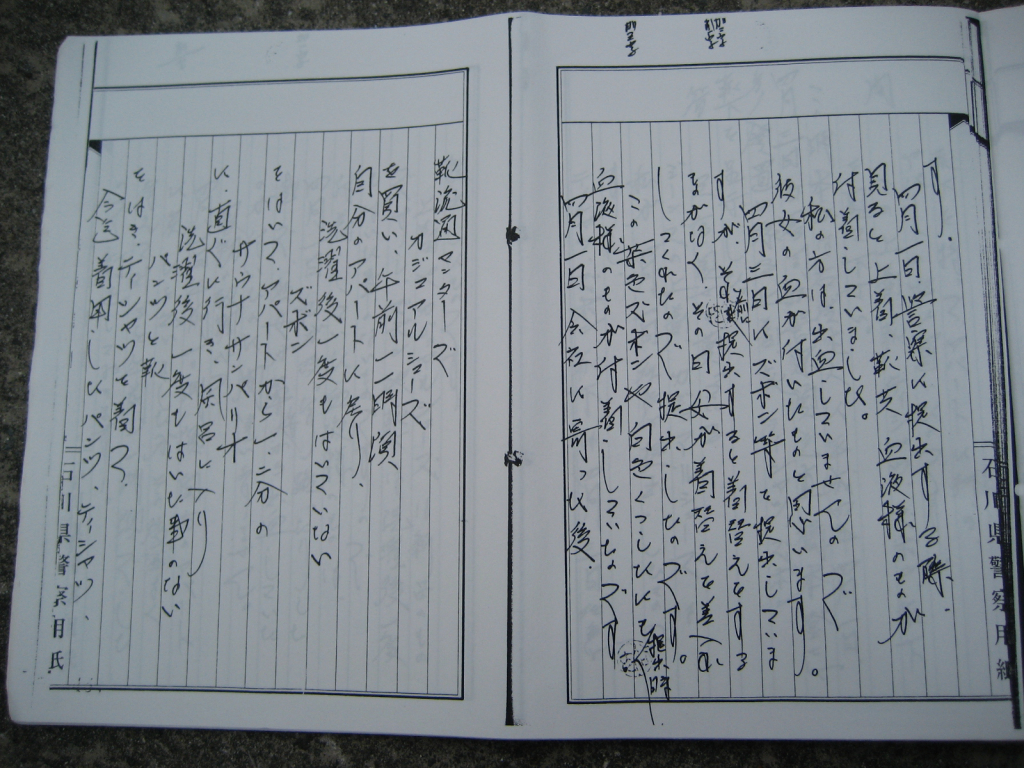 す。
四月一日、警察に提出する際、
見ると上着、靴共血液様のものが
付着していました。
私の方は、出血していませんので
彼女の血が付いたものと思います。
四月二日にズボン等を提出していま
すが、それは提出すると着替えをする
まがなく、その日父が着替えを差入れ
してくれたので提出したのです。
この茶色ズボンや白色くつしたにも、提出時
血液様のものが付着していたのです
四月一日会社に寄った後、
石川県警察用紙
靴流通センターで
カジュアルシューズ
を買い、午前一一時頃
自分のアパートに戻り、
洗濯後一度もはいていない
ズボン
をはいて、アパートから一、二分の
サウナサンパリオ
に、直ぐに行き、風呂に入り
洗濯後一度もはいた事のない
パンツと靴
をはき、ティシャツを着て、
着用したパンツ、ティシャツ、
石川県警察用紙